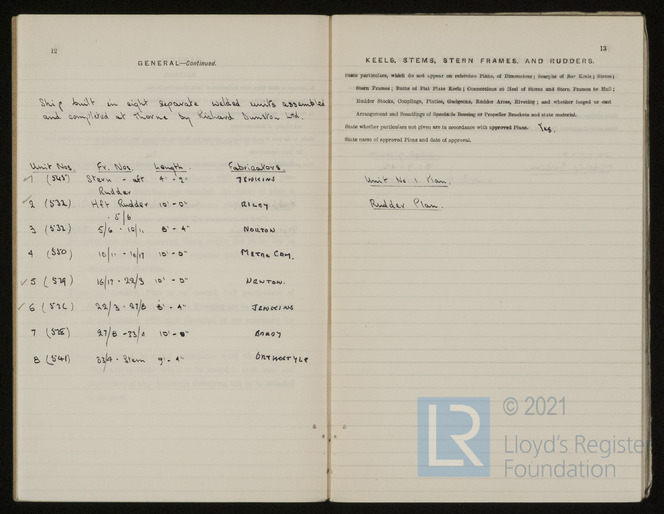 12
GENERAL—Continued.
Ship built in eight separate welded units assembled
and completed at Thorne by Richard Dunston Ltd.
Unit Nos. Fr. Nos. Length. Fabricators.
1 Stern - aft 4'-2" JENKINS
Rudder
2 (532) Aft Rudder 10'-0" RILEY
- 5/6
3 (532) 5/6 - 10/11 8'-4" NORTON
4 (550) 10/11 - 16/17 10'-0" METRO CAM.
5 (529) 16/17 - 22/3 10'-0" NEWTON.
6 22/3 - 27/8 8'-4" JENKINS
7 27/8 - 33/4 10'-0"
8 (541) 33/4 - Stem 9'-4"
13
KEELS, STEMS, STERN FRAMES, AND RUDDERS.
State particulars, which do not appear on reference Plans, of Dimensions; Scarphs of Bar Keels; Stems;
Stern Frames; Butts of Flat Plate Keels; Connections at Heel of Stems and Stern Frames to Hull;
Rudder Stocks, Couplings, Pintles, Gudgeons, Rudder Arms, Riveting; and whether forged or cast
Arrangement and Scantlings of Spectacle Bossing or Propeller Brackets and state material.
State whether particulars not given are in accordance with approved Plans. Yes.
State name of approved Plans and date of approval.
Unit No 1 Plan.
Rudder Plan.
LR
© 2021
Lloyd's Register
Foundation